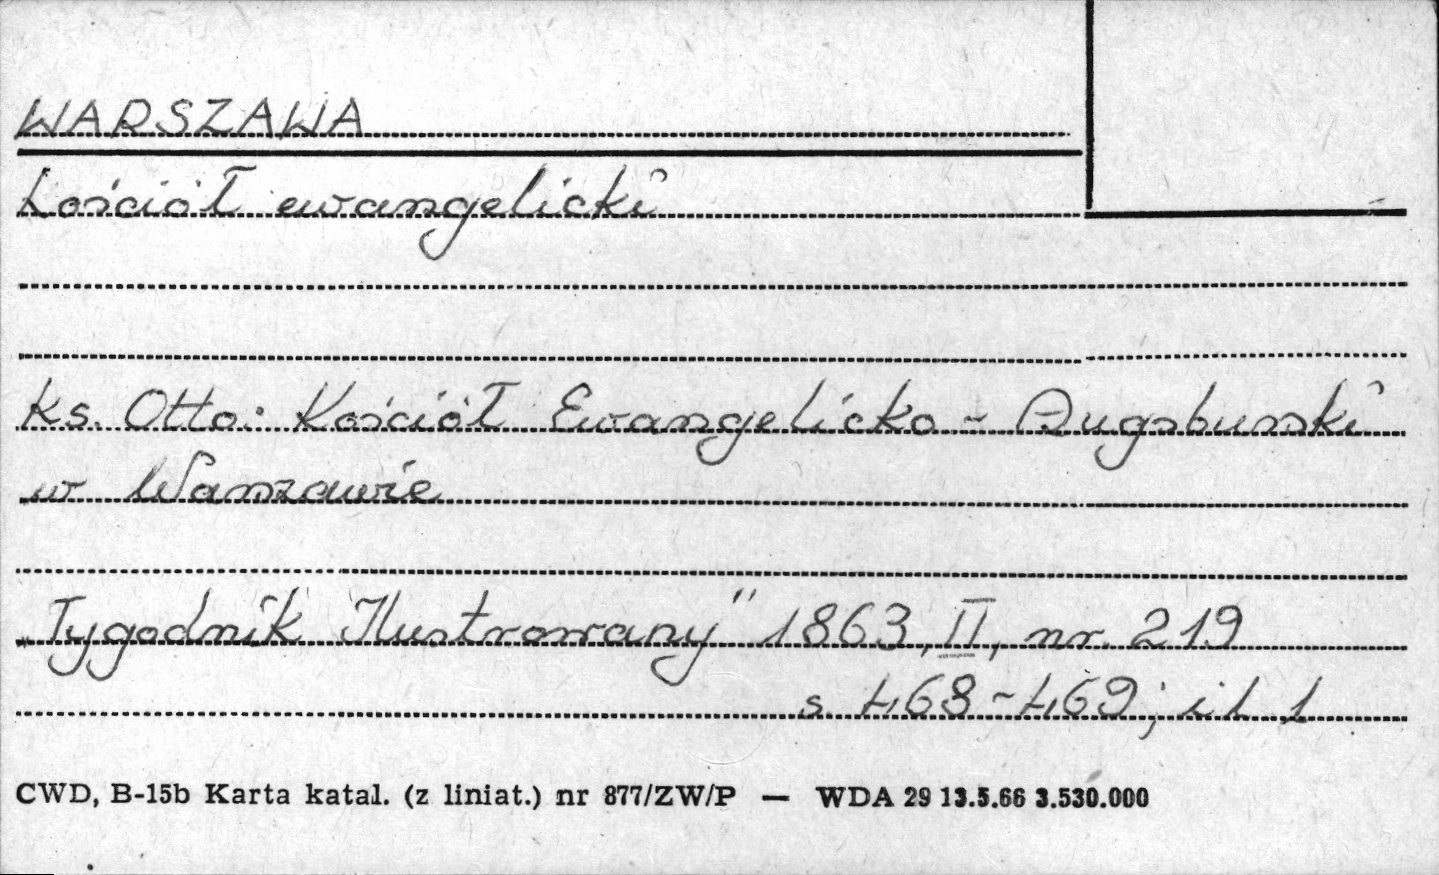 WARSZAWA
Kościół ewangelicki
ks. Otto: Kościół Ewangelicko - Augsburski
w Warszawie
„Tygodnik Ilustrowany" 1863, II, nr. 219
s. 468-469; il 1
CWD, B-15b Karta katal. (z liniat.) nr 877/ZW/P — WDA 29 13.5.66 3.530.000